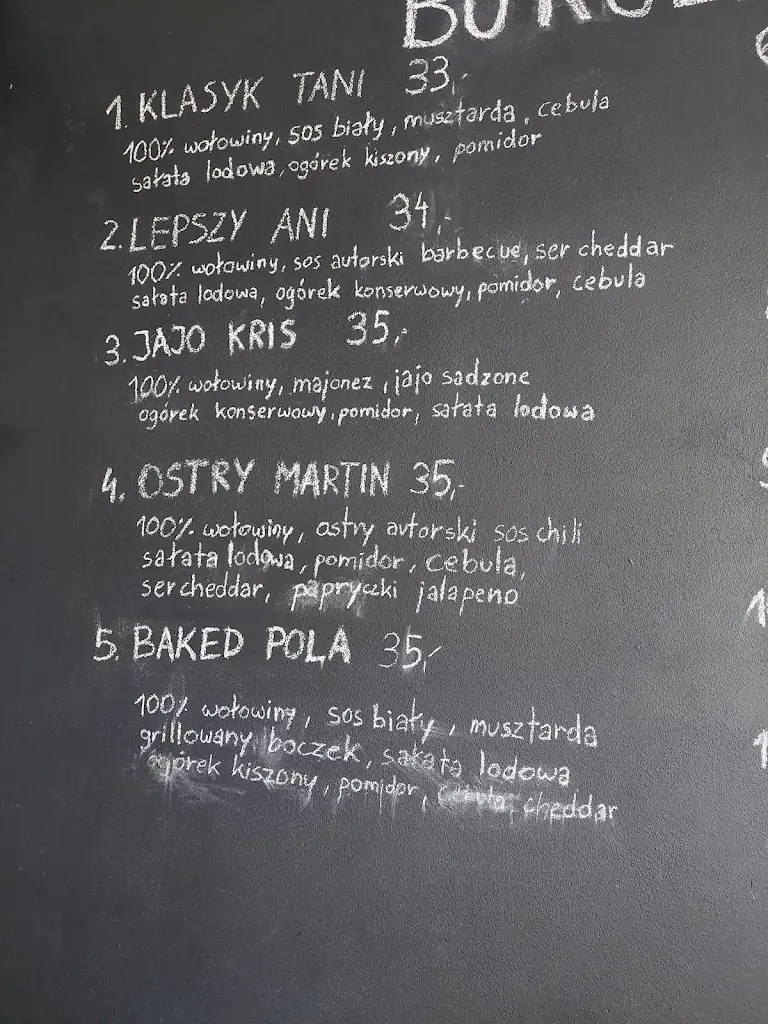 1. KLASYK TANI 33,-
100% wołowiny, sos biały, musztarda, cebula
sałata lodowa, ogórek kiszony, pomidor
2. LEPSZY ANI 34,-
100% wołowiny, sos autorski barbecue, ser cheddar
sałata lodowa, ogórek konserwowy, pomidor, cebula
3. JAJO KRIS 35,-
100% wołowiny, majonez, jajo sadzone
ogórek konserwowy, pomidor, sałata lodowa
4. OSTRY MARTIN 35,-
100% wołowiny, ostry autorski sos chili
sałata lodowa, pomidor, cebula,
ser cheddar, papryczki jalapeno
5. BAKED POLA 35,-
100% wołowiny, sos biały, musztarda
grillowany boczek, sałata lodowa
ogórek kiszony, pomidor, cebula, cheddar